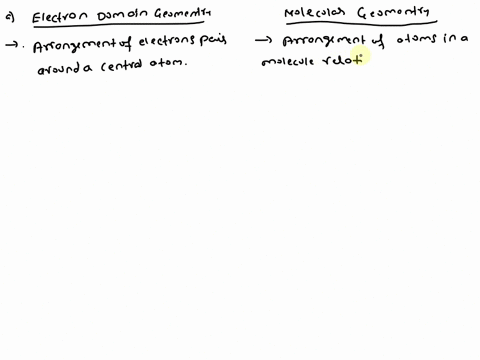 a) Electron Domain Geomentry
→. Arrangement of electrons pais
around a central atom.
Molecular Geomentry
→ Arrangement of atoms in a
molecule relati